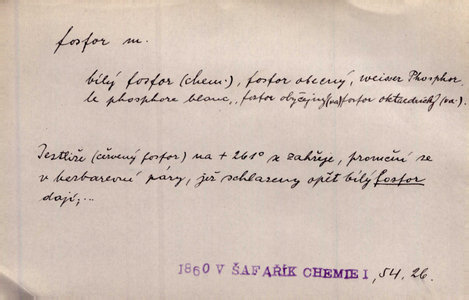 fosfor m.
bílý fosfor (chem.), fosfor obecný, weisser Phosphor,
le phosphore blanc, fosfor obyčejný (va) fosfor oktaedrický (va).
Jestliže (červený fosfor) na + 261° zahřeje, promění se
v bezbarevné páry, jež schlazeny opět bílý fosfor
dají;...
1860 V ŠAFAŘÍK CHEMIE I, 54. 26.